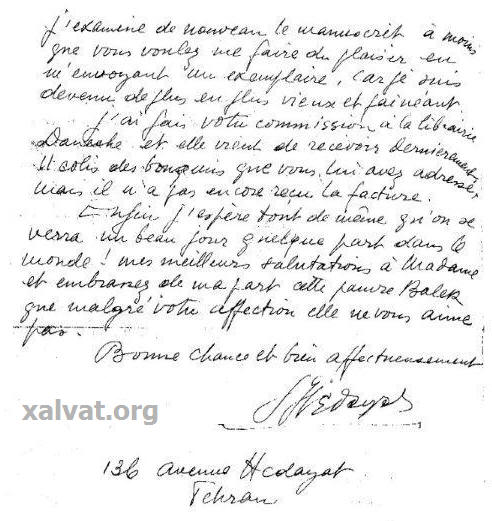 j'examine de nouveau le manuscrit à moins
que vous voulez me faire du plaisir en
m'envoyant un exemplaire, car je suis
devenu de plus en plus vieux et fainéant
J'ai fais votre commission à la librairie
Danesche et elle vient de recevoir dernièrement
11 colis des bouquins que vous lui avez adressés,
mais il n'a pas encore reçu la facture.
Enfin j'espère tout de même qu'on se
verra un beau jour quelque part dans le
monde! mes meilleurs salutations à Madame
et embrassez de ma part cette pauvre Balek
que malgré votre affection elle ne vous aime
pas.
Bonne chance et bien affectueusement
S. Hedayat
xalvat.org
136 avenue Hedayat
Tehran